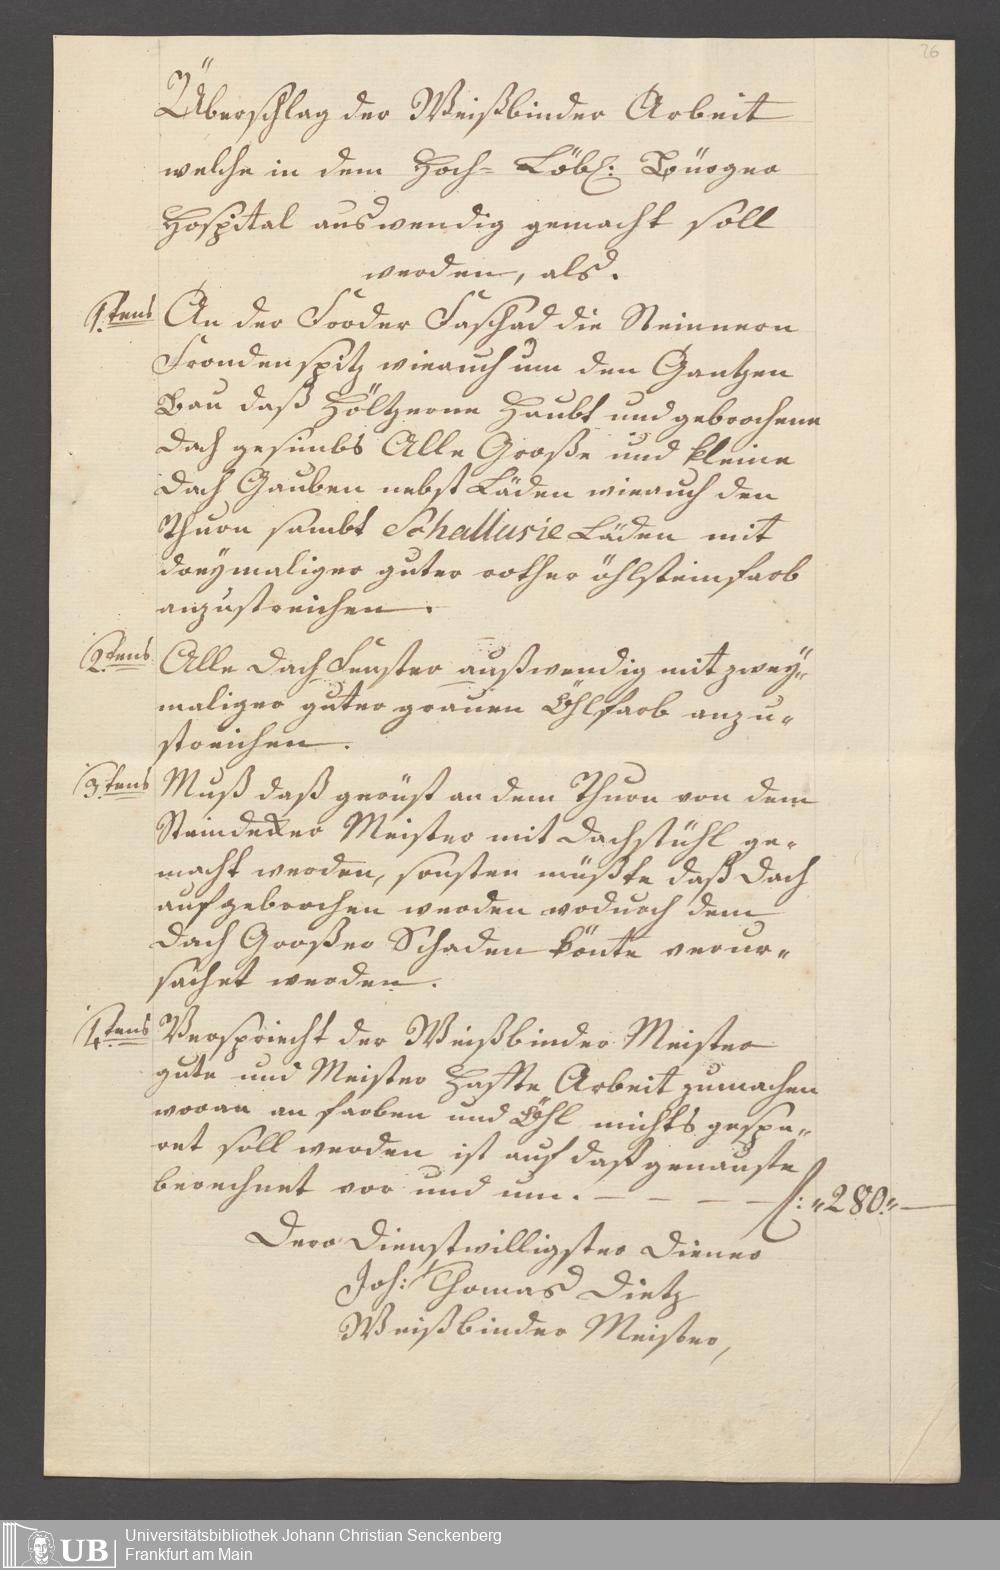 26
Überschlag der Weißbinder Arbeit
welche in dem Hoch- Löbl: Bürger
Hospital auswendig gemacht soll
werden, als.
1.tens An der Forder Faschad die Steinnern
Frondenspitz wieauch um den Gantzen
Bau daß Höltzerne Haubt und gebrochene
Dach gesimbs Alle Große und kleine
Dach Gauben nebst Läden wieauch den
Thurn sambt Schallusie Läden mit
dreymaliger guter rother öhlsteinfarb
anzustreichen.
2.tens Alle Dach Fenster außwendig mit zwey-
maliger guter grauen Öhlfarb anzu-
streichen.
3.tens Muß daß gerüst an dem Thurn von dem
Steindecker Meister mit Dachstühl ge-
macht werden, sonsten müßte daß Dach
aufgebrochen werden wodurch dem
Dach Großer Schaden könte verur-
sachet werden.
4.tens Verspriecht der Weißbinder Meister
gute und Meister Haffte Arbeit zumachen
woran an farben und Öhl nichts gespa-
ret soll werden ist auf daß genauste
berechnet vor und um. — — — — f: "280."—
Dero Dienstwilligster Diener
Joh: Thomas Dietz
Weißbinder Meister,
UB
Universitätsbibliothek Johann Christian Senckenberg
Frankfurt am Main